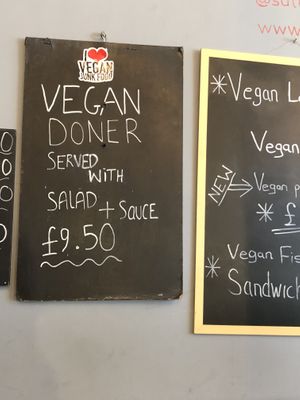 I
VEGAN
JUNK FOOD
VEGAN
DONER
SERVED
WITH
SALAD + SAUCE
£9.50
*Vegan
Vegan
NEW
Vegan
* £
Vegan
*
Sandwich
www.